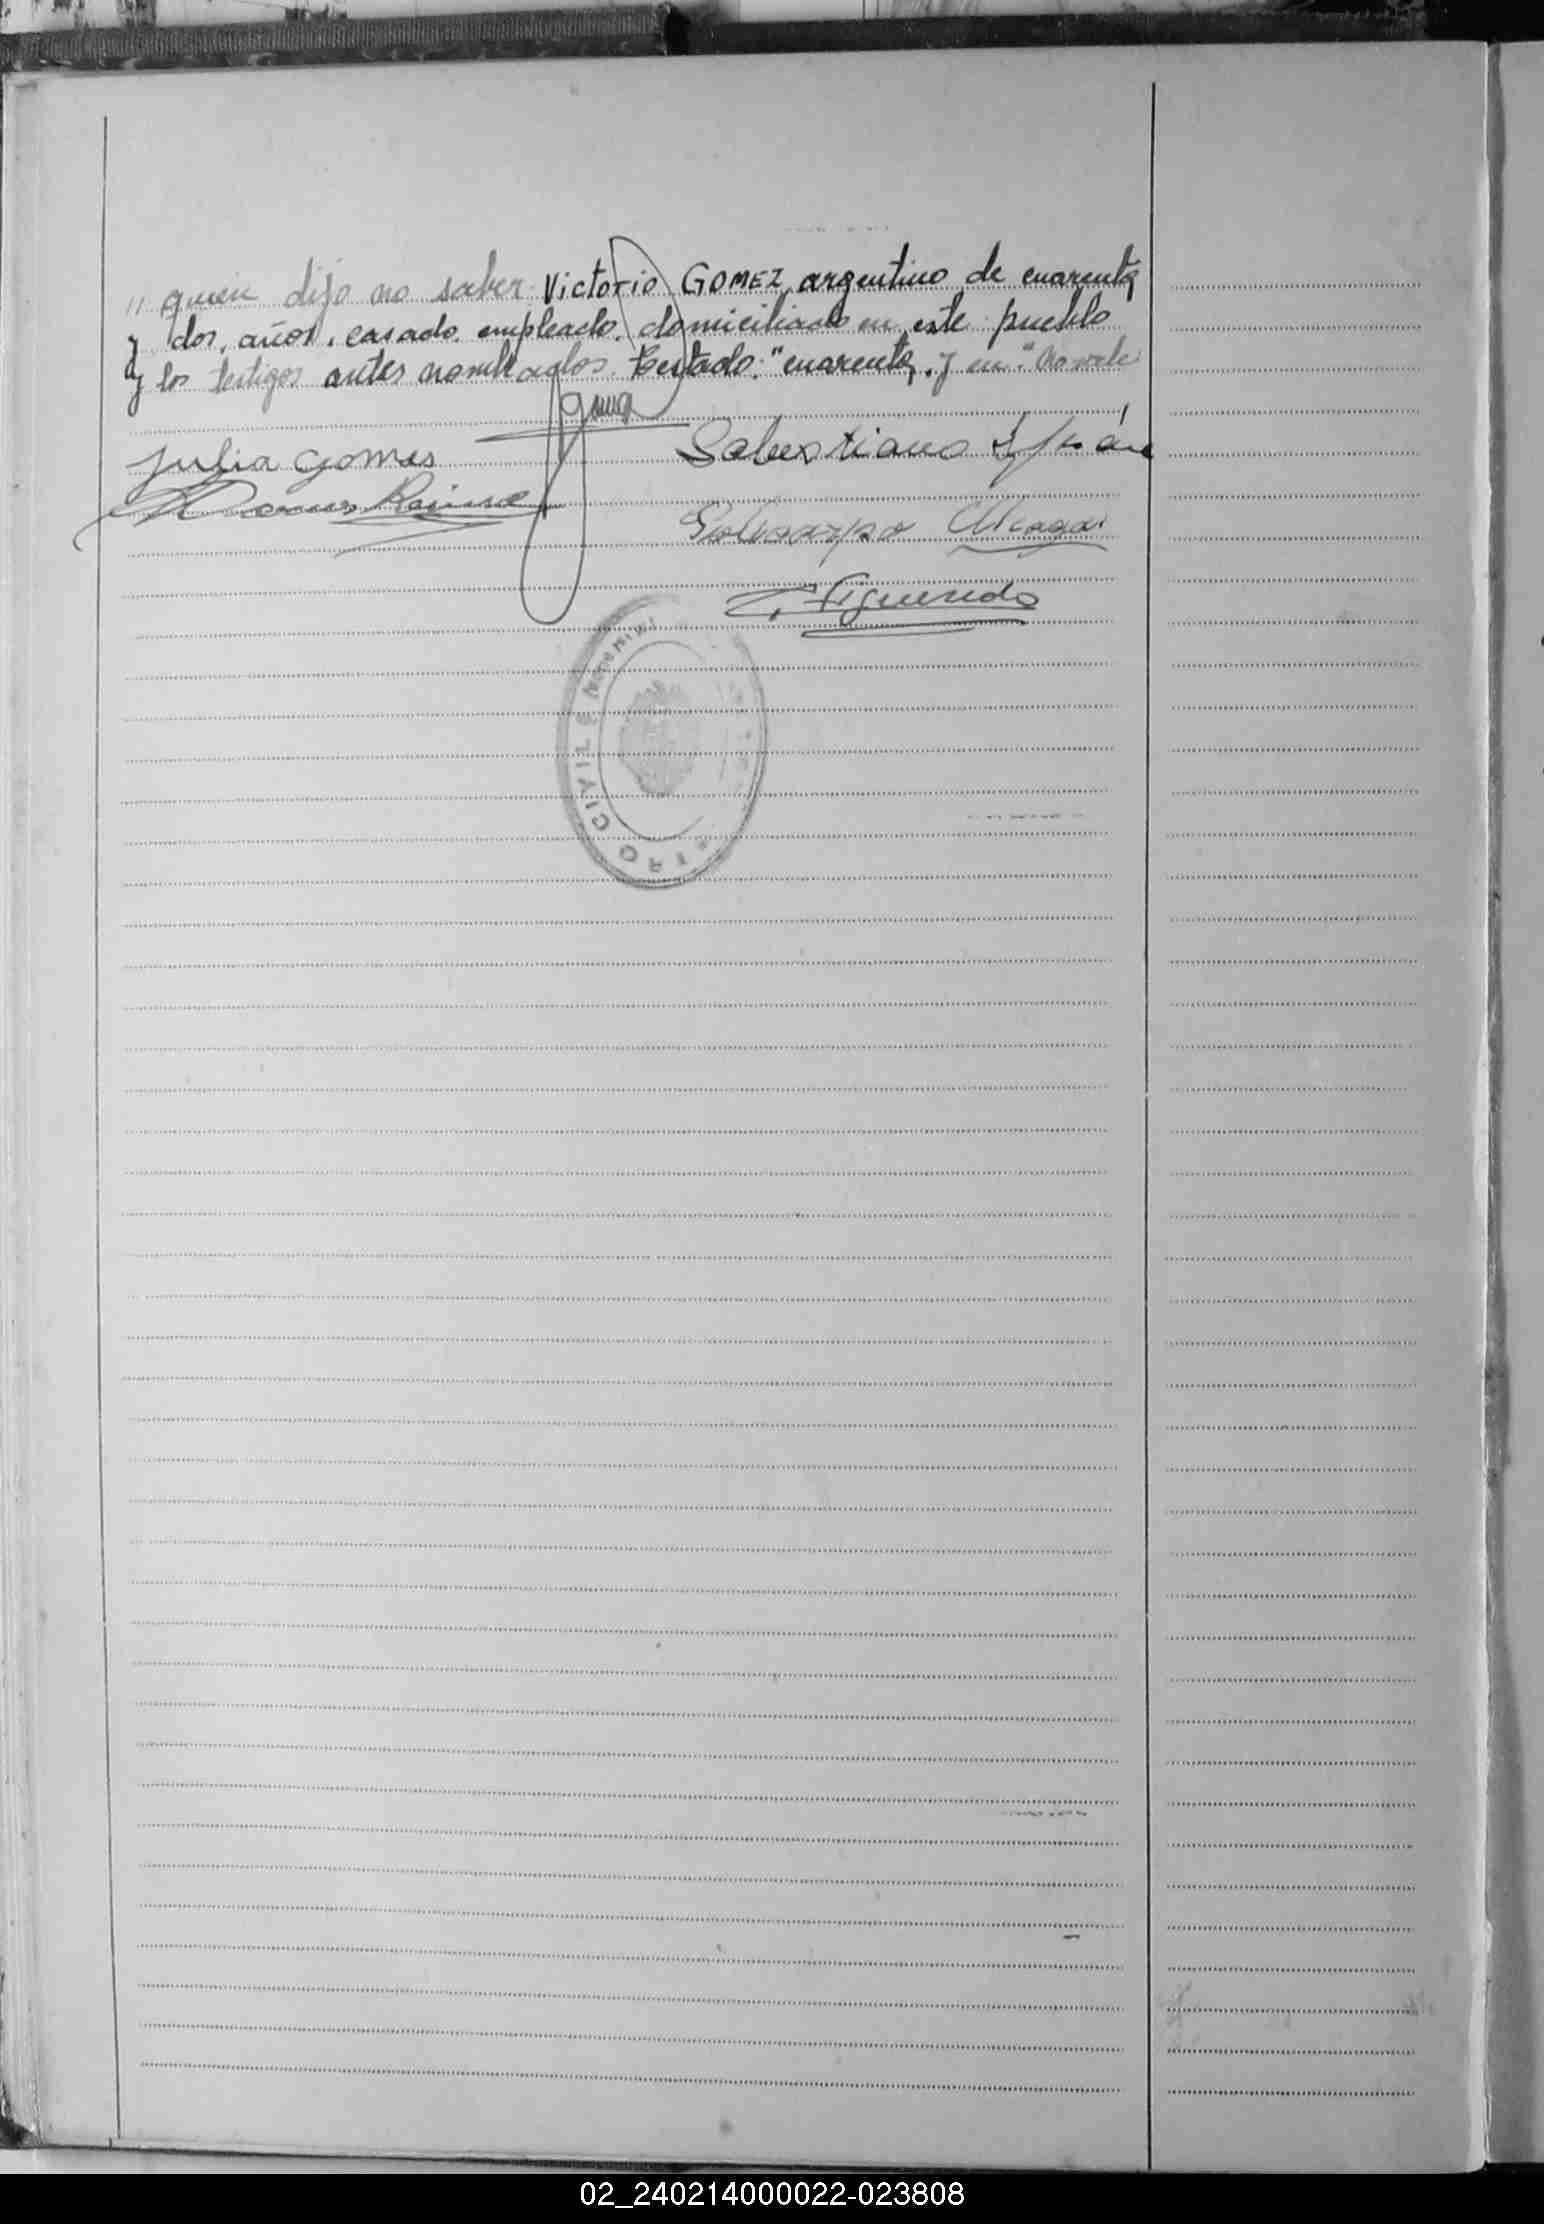 // quien dijo no saber Victorio GOMEZ, argentino de cuarenta
y dos, años, casado, empleado, domiciliado en este pueblo
y los testigos antes nombrados. Testado: "cuarenta, y en" No vale
Julia Gomes
Sabestiano
Ramirez
Policarpo
Figueredo
TRO CIVIL E
02_240214000022-023808